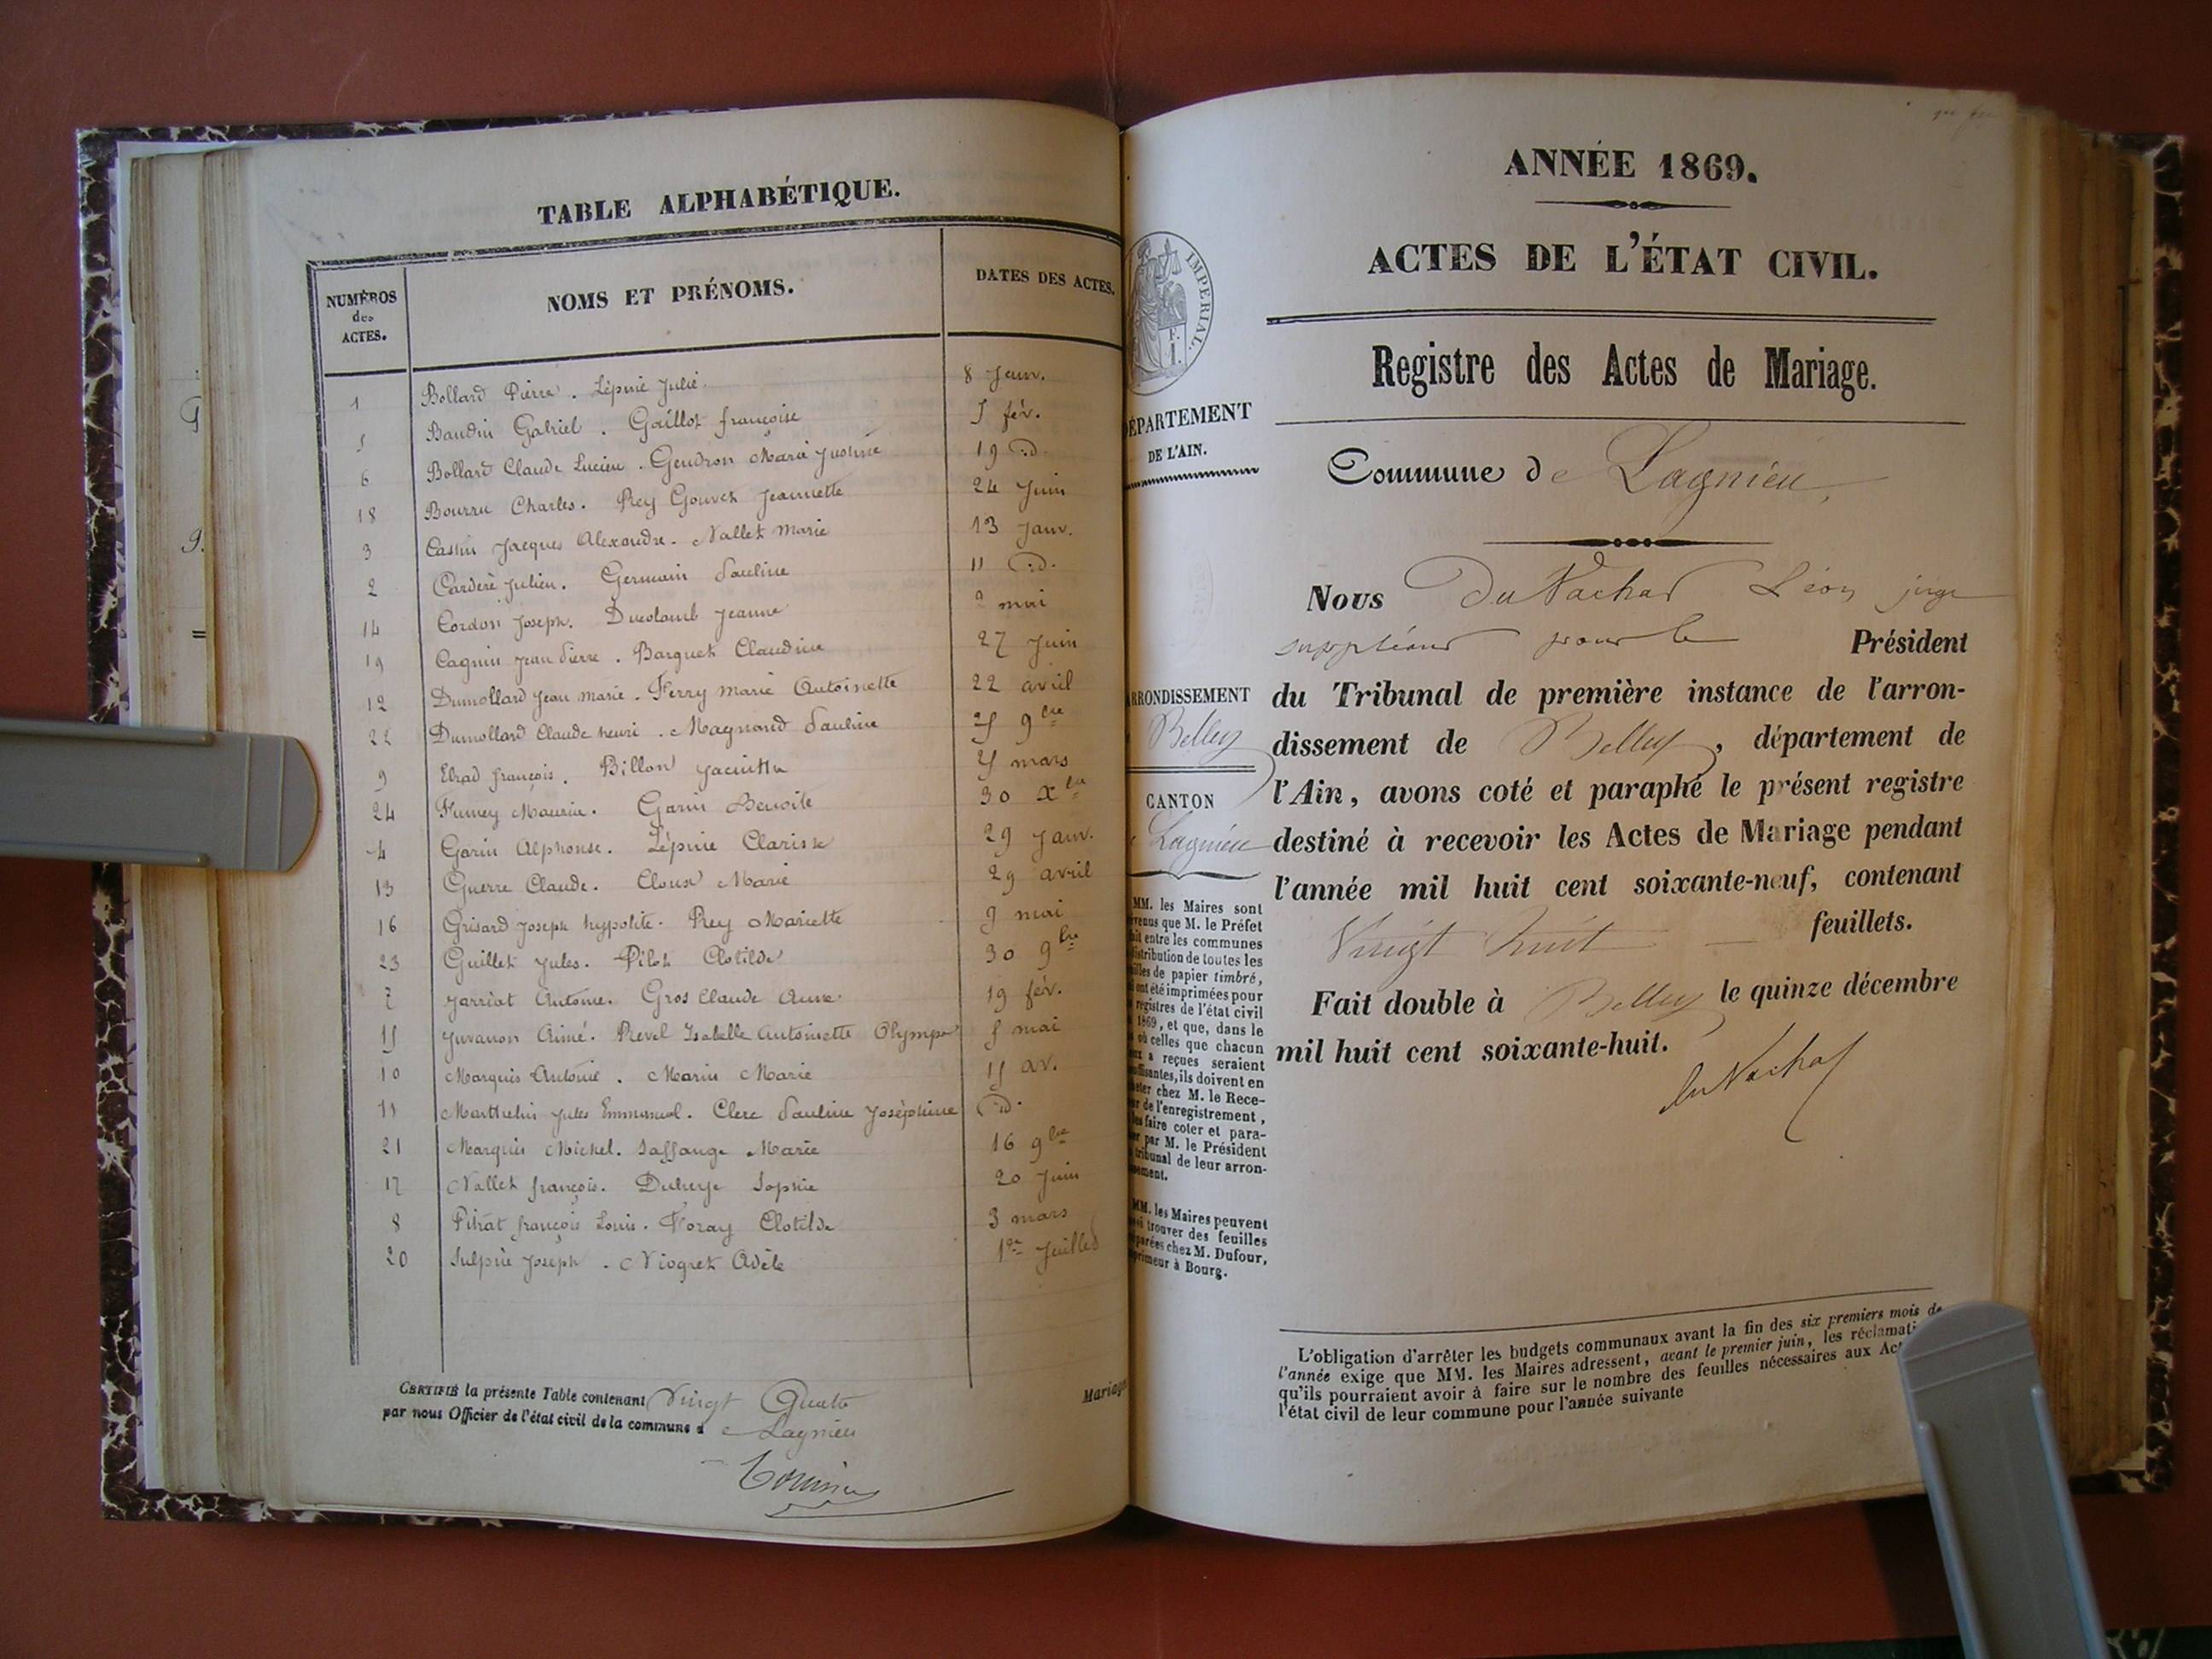 TABLE ALPHABÉTIQUE.
NUMÉROS
des
ACTES.
NOMS ET PRÉNOMS.
DATES DES ACTES.
1 Bollard Pierre. Lépine Julie. 8 Janv.
5 Baudin Gabriel. Gaillot françoise 5 fév.
6 Bollard Claude Lucien. Gendron Marie Justine 19 d.
18 Bourru Charles. Rey Gouvet Jeannette 24 Juin
3 Cassin Jacques Alexandre. Vallet Marie 13 Janv.
2 Carderé Julien. Germain Pauline 11 d.
14 Cordon Joseph. Ducolomb Jeanne mai
19 Cagnin Jean Pierre. Barquet Claudine 27 Juin
12 Dumollard Jean marie. Ferry marie Antoinette 22 avril
22 Dumollard Claude henri. Magnand Pauline 25 9bre
9 Elrad françois. Billon Jacintha 25 mars
24 Fumey Maurice. Garin Benoite 30 Xbre
4 Garin Alphonse. Lépine Clarisse 29 Janv.
13 Guerre Claude. Cloux Marie 29 avril
16 Grisard Joseph hypolite. Rey Mariette 9 mai
23 Guillet Jules. Pilot Clotilde 30 9bre
7 Jarriat Antoine. Gros Claude Anne 19 fév.
15 Juvanon Aimé. Revel Isabelle Antoinette Olympe 5 mai
10 Marquis Antoine. Marin Marie 15 av.
11 Matthelin Jules Emmanuel. Clerc Pauline Joséphine d.
21 Marquis Michel. Saffange Marie 16 9bre
17 Vallet françois. Sophie 20 Juin
8 Pitrat françois Louis. Foray Clotilde 3 mars
20 Sulpice Joseph. Viogret Adèle 1er Juillet
CERTIFIÉ la présente Table contenant Vingt Quatre
par nous Officier de l'état civil de la commune d e Lagnieu
Mariage
ANNÉE 1869.
ACTES DE L'ÉTAT CIVIL.
Registre des Actes de Mariage.
IMPERIAL
DÉPARTEMENT
DE L'AIN.
Commune de Lagnieu,
Nous Du Nachat Léon juge
suppléant pour le Président
du Tribunal de première instance de l'arron-
dissement de Belley, département de
l'Ain, avons coté et paraphé le présent registre
destiné à recevoir les Actes de Mariage pendant
l'année mil huit cent soixante-neuf, contenant
Vingt huit feuillets.
Fait double à Belley le quinze décembre
mil huit cent soixante-huit.
du Nachat
ARRONDISSEMENT
Belley
CANTON
Lagnieu
MM. les Maires sont
venus que M. le Préfet
ait entre les communes
distribution de toutes les
illes de papier timbré,
i ont été imprimées pour
s registres de l'état civil
1869, et que, dans le
s où celles que chacun
eux a reçues seraient
uffisantes, ils doivent en
eter chez M. le Rece-
ur de l'enregistrement,
les faire coter et para-
er par M. le Président
tribunal de leur arron-
ssement.
MM. les Maires peuvent
ssi trouver des feuilles
parées chez M. Dufour,
primeur à Bourg.
L'obligation d'arrêter les budgets communaux avant la fin des six premiers mois de
l'année exige que MM. les Maires adressent, avant le premier juin, les réclamati
qu'ils pourraient avoir à faire sur le nombre des feuilles nécessaires aux Act
l'état civil de leur commune pour l'année suivante